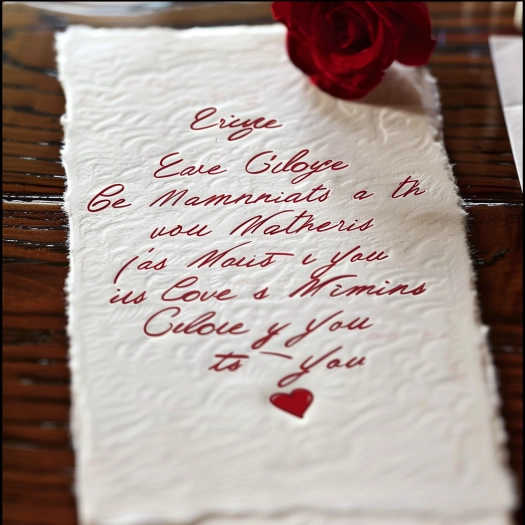 Eriye
Eave Ciloye
Ce Mamnniats a th
vou Matheris
as Mout i you
us Love s Mrmins
Ciloie y you
ts – you